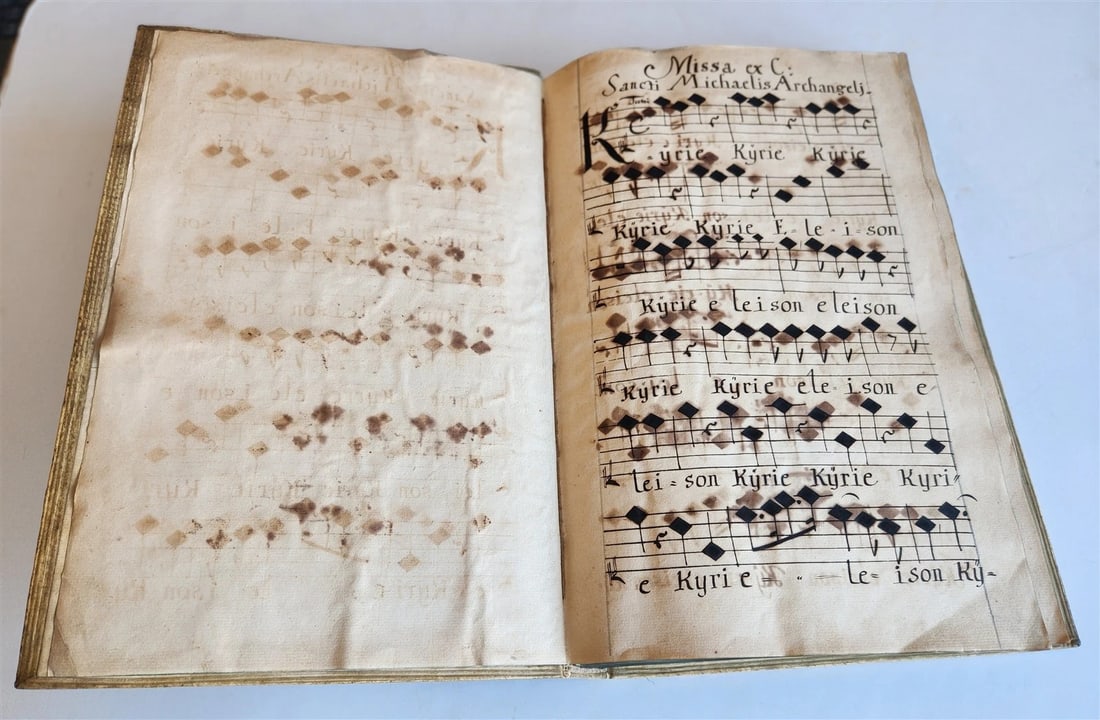 Missa ex C:
Sancti Michaelis Archangelj.
Tutti
Kyrie Kÿrie Kÿrie
Kÿrie Kÿrie E-le-i-son
Kÿrie e leison eleison
Kÿrie Kÿrie ele ison e
lei=son Kÿrie Kÿrie Kyri
e Kyrie - - le=ison Kÿ=